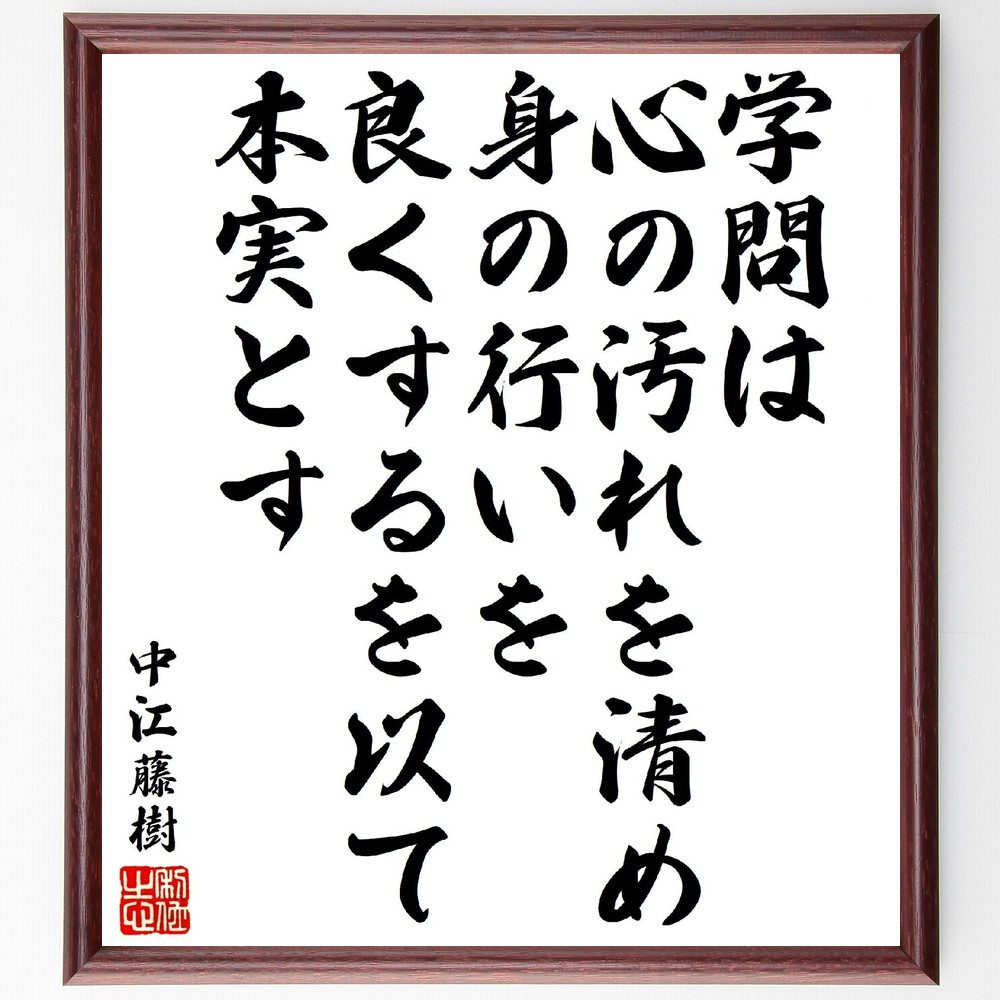 学問は
心の汚れを清め
身の行いを
良くするを以て
本実とす
中江藤樹